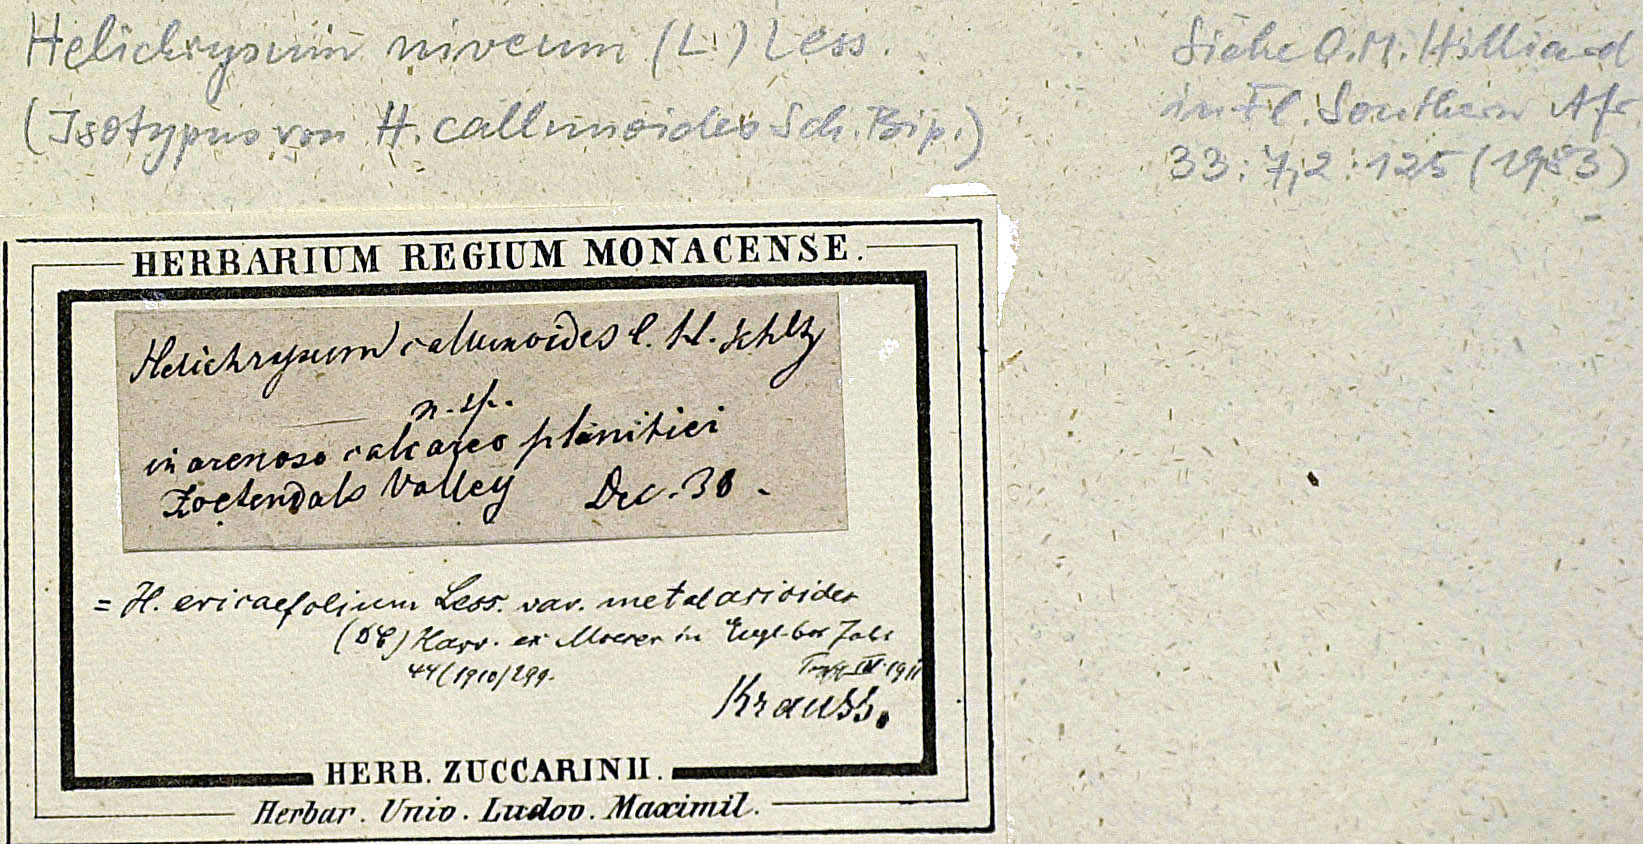 Helichrysum niveum (L.) Less.
(Isotypus von H. callunoides Sch. Bip.)
Siehe O.M. Hilliard
in Fl. Southern Afr.
33: 7,2: 125 (1983)
HERBARIUM REGIUM MONACENSE.
Helichrysum callunoides C. H. Schltz
n. sp.
in arenoso calcareo planitiei
Zoetendals Valley Dec. 38.
= H. ericaefolium Less. var. metalasioides
(DC) Harv. ex Moeser in Engl. bot Jahr
44 (1910) 299.
1911
Krauss.
HERB. ZUCCARINII.
Herbar. Univ. Ludov. Maximil.